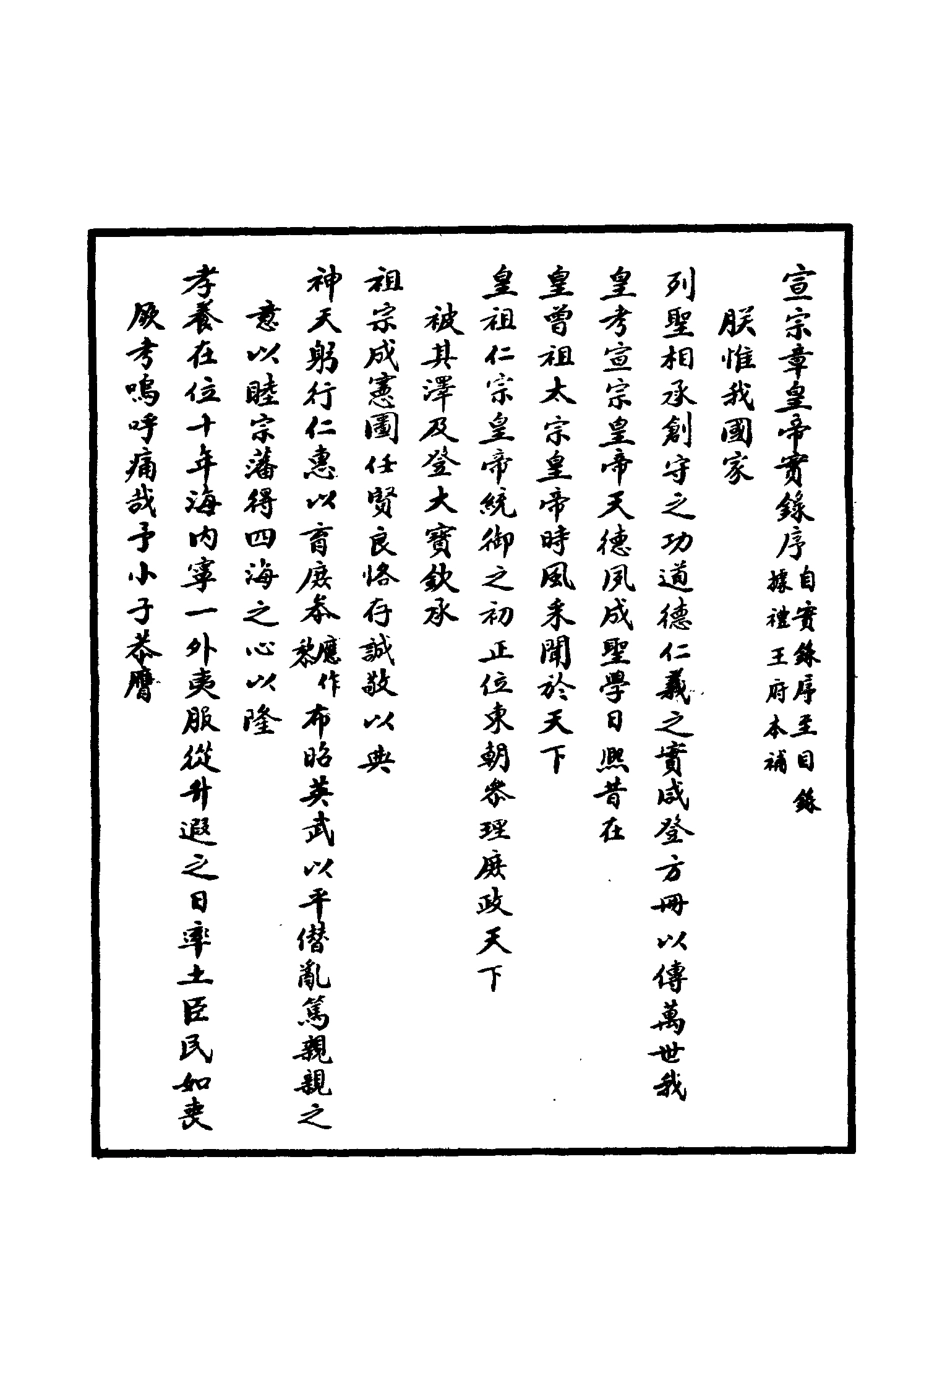 宣宗章皇帝實錄序
自實錄序至目錄
據禮王府本補
朕惟我國家
列聖相承創守之功道德仁義之實咸登方冊以傳萬世我
皇考宣宗皇帝天德夙成聖學日熙昔在
皇曾祖太宗皇帝時風釆聞於天下
皇祖仁宗皇帝統御之初正位東朝叅理庶政天下
被其澤及登大寶欽承
祖宗成憲圖任賢良恪存誠敬以典
神天躬行仁惠以育庶叅應作黎布昭英武以平僭亂篤親親之
意以睦宗藩得四海之心以隆
孝養在位十年海内寧一外夷服從升遐之日率土臣民如喪
厥考嗚呼痛哉予小子恭膺